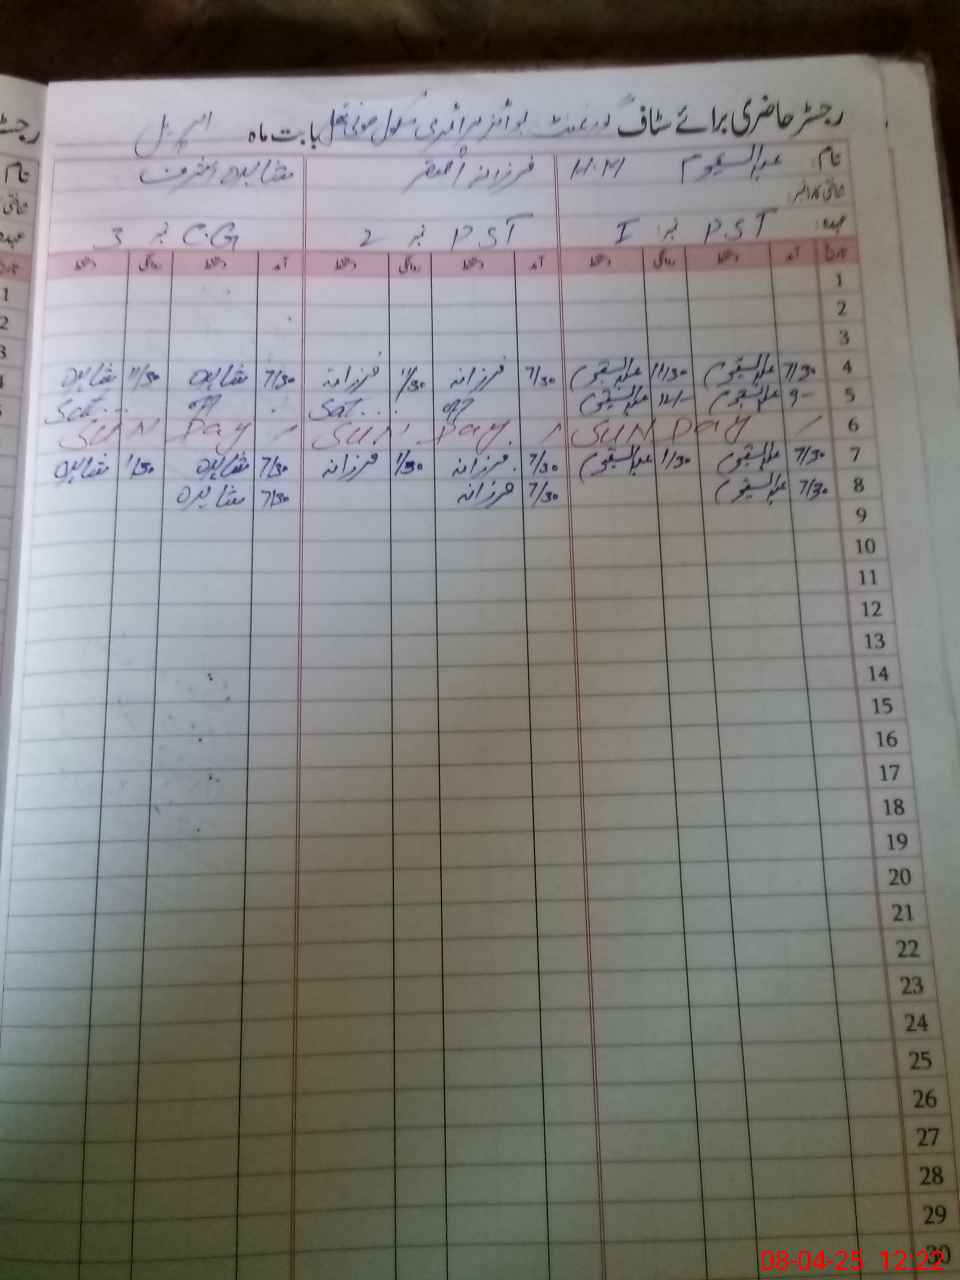 رجسٹر حاضری برائے سٹاف گورنمنٹ بوائز پرائمری سکول بابت ماہ اپریل
نام: عبدالقیوم H.M فرزانہ اصغر شاہدہ اشرف
عہدہ: PST نمبر I PST نمبر 2 C.G نمبر 3
تاریخ آمد دستخط روانگی دستخط آمد دستخط روانگی دستخط آمد دستخط روانگی دستخط
1
2
3
4 7/30 عبدالقیوم 11/30 عبدالقیوم 7/30 فرزانہ 11/30 فرزانہ 7/30 شاہدہ 11/30 شاہدہ
5 9- عبدالقیوم عبدالقیوم Sat... off Sat... off
6 SUN Day SUN Day SUN Day
7 7/30 عبدالقیوم 1/30 عبدالقیوم 7/30 فرزانہ 1/30 فرزانہ 7/30 شاہدہ 1/30 شاہدہ
8 7/30 عبدالقیوم 7/30 فرزانہ 7/30 شاہدہ
9
10
11
12
13
14
15
16
17
18
19
20
21
22
23
24
25
26
27
28
29
30
08-04-25 12:22